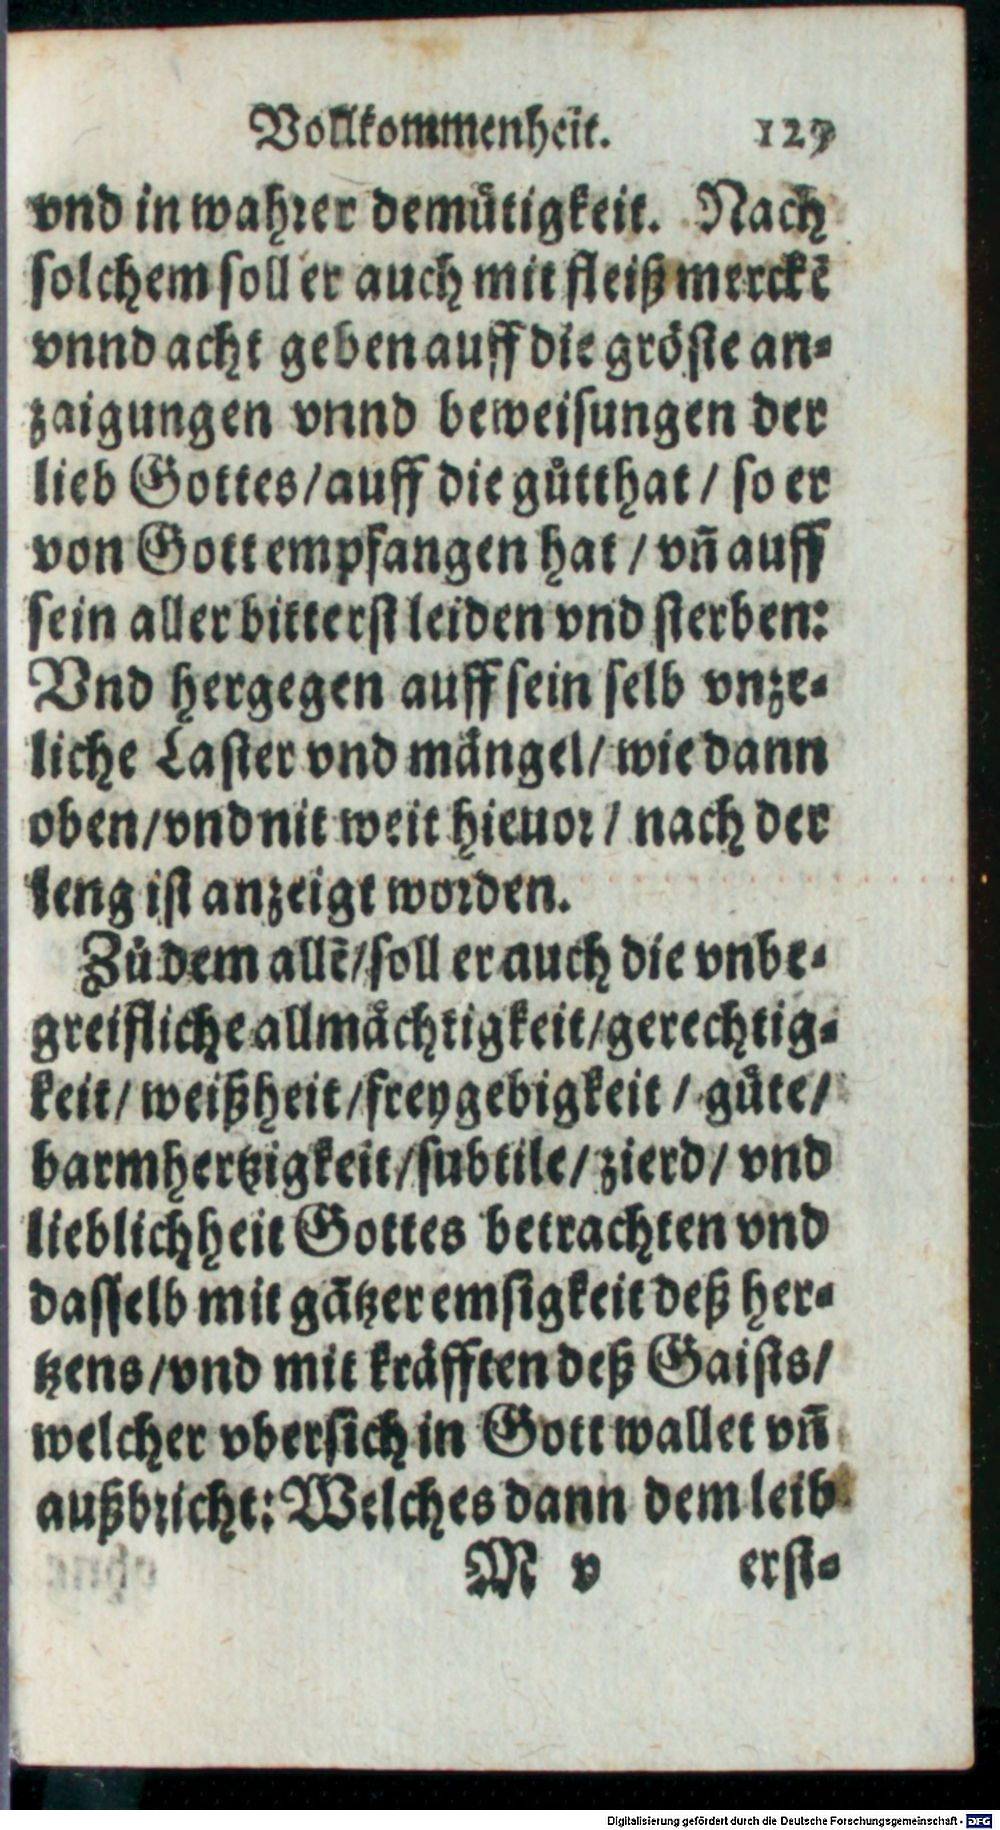 Vollkommenheit. 129
vnd in wahrer demůtigkeit. Nach
solchem soll er auch mit fleiß merckē
vnnd acht geben auff die gröste an-
zaigungen vnnd beweisungen der
lieb Gottes/auff die gůtthat/ so er
von Gott empfangen hat/ vn̄ auff
sein aller bitterst leiden vnd sterben:
Vnd hergegen auff sein selb vnze-
liche Laster vnd mängel/ wie dann
oben/vnd nit weit hieuor/ nach der
leng ist anzeigt worden.
Zů dem allē/soll er auch die vnbe-
greifliche allmåchtigkeit/gerechtig-
keit/ weißheit/freygebigkeit/ gůte/
barmhertzigkeit/subtile/zierd/ vnd
lieblichheit Gottes betrachten vnd
dasselb mit gātzer emsigkeit deß her-
tzens/vnd mit kräfften deß Gaists/
welcher vbersich in Gott wallet vn̄
außbricht: Welches dann dem leib
M v erst-
Digitalisierung gefördert durch die Deutsche Forschungsgemeinschaft - DFG